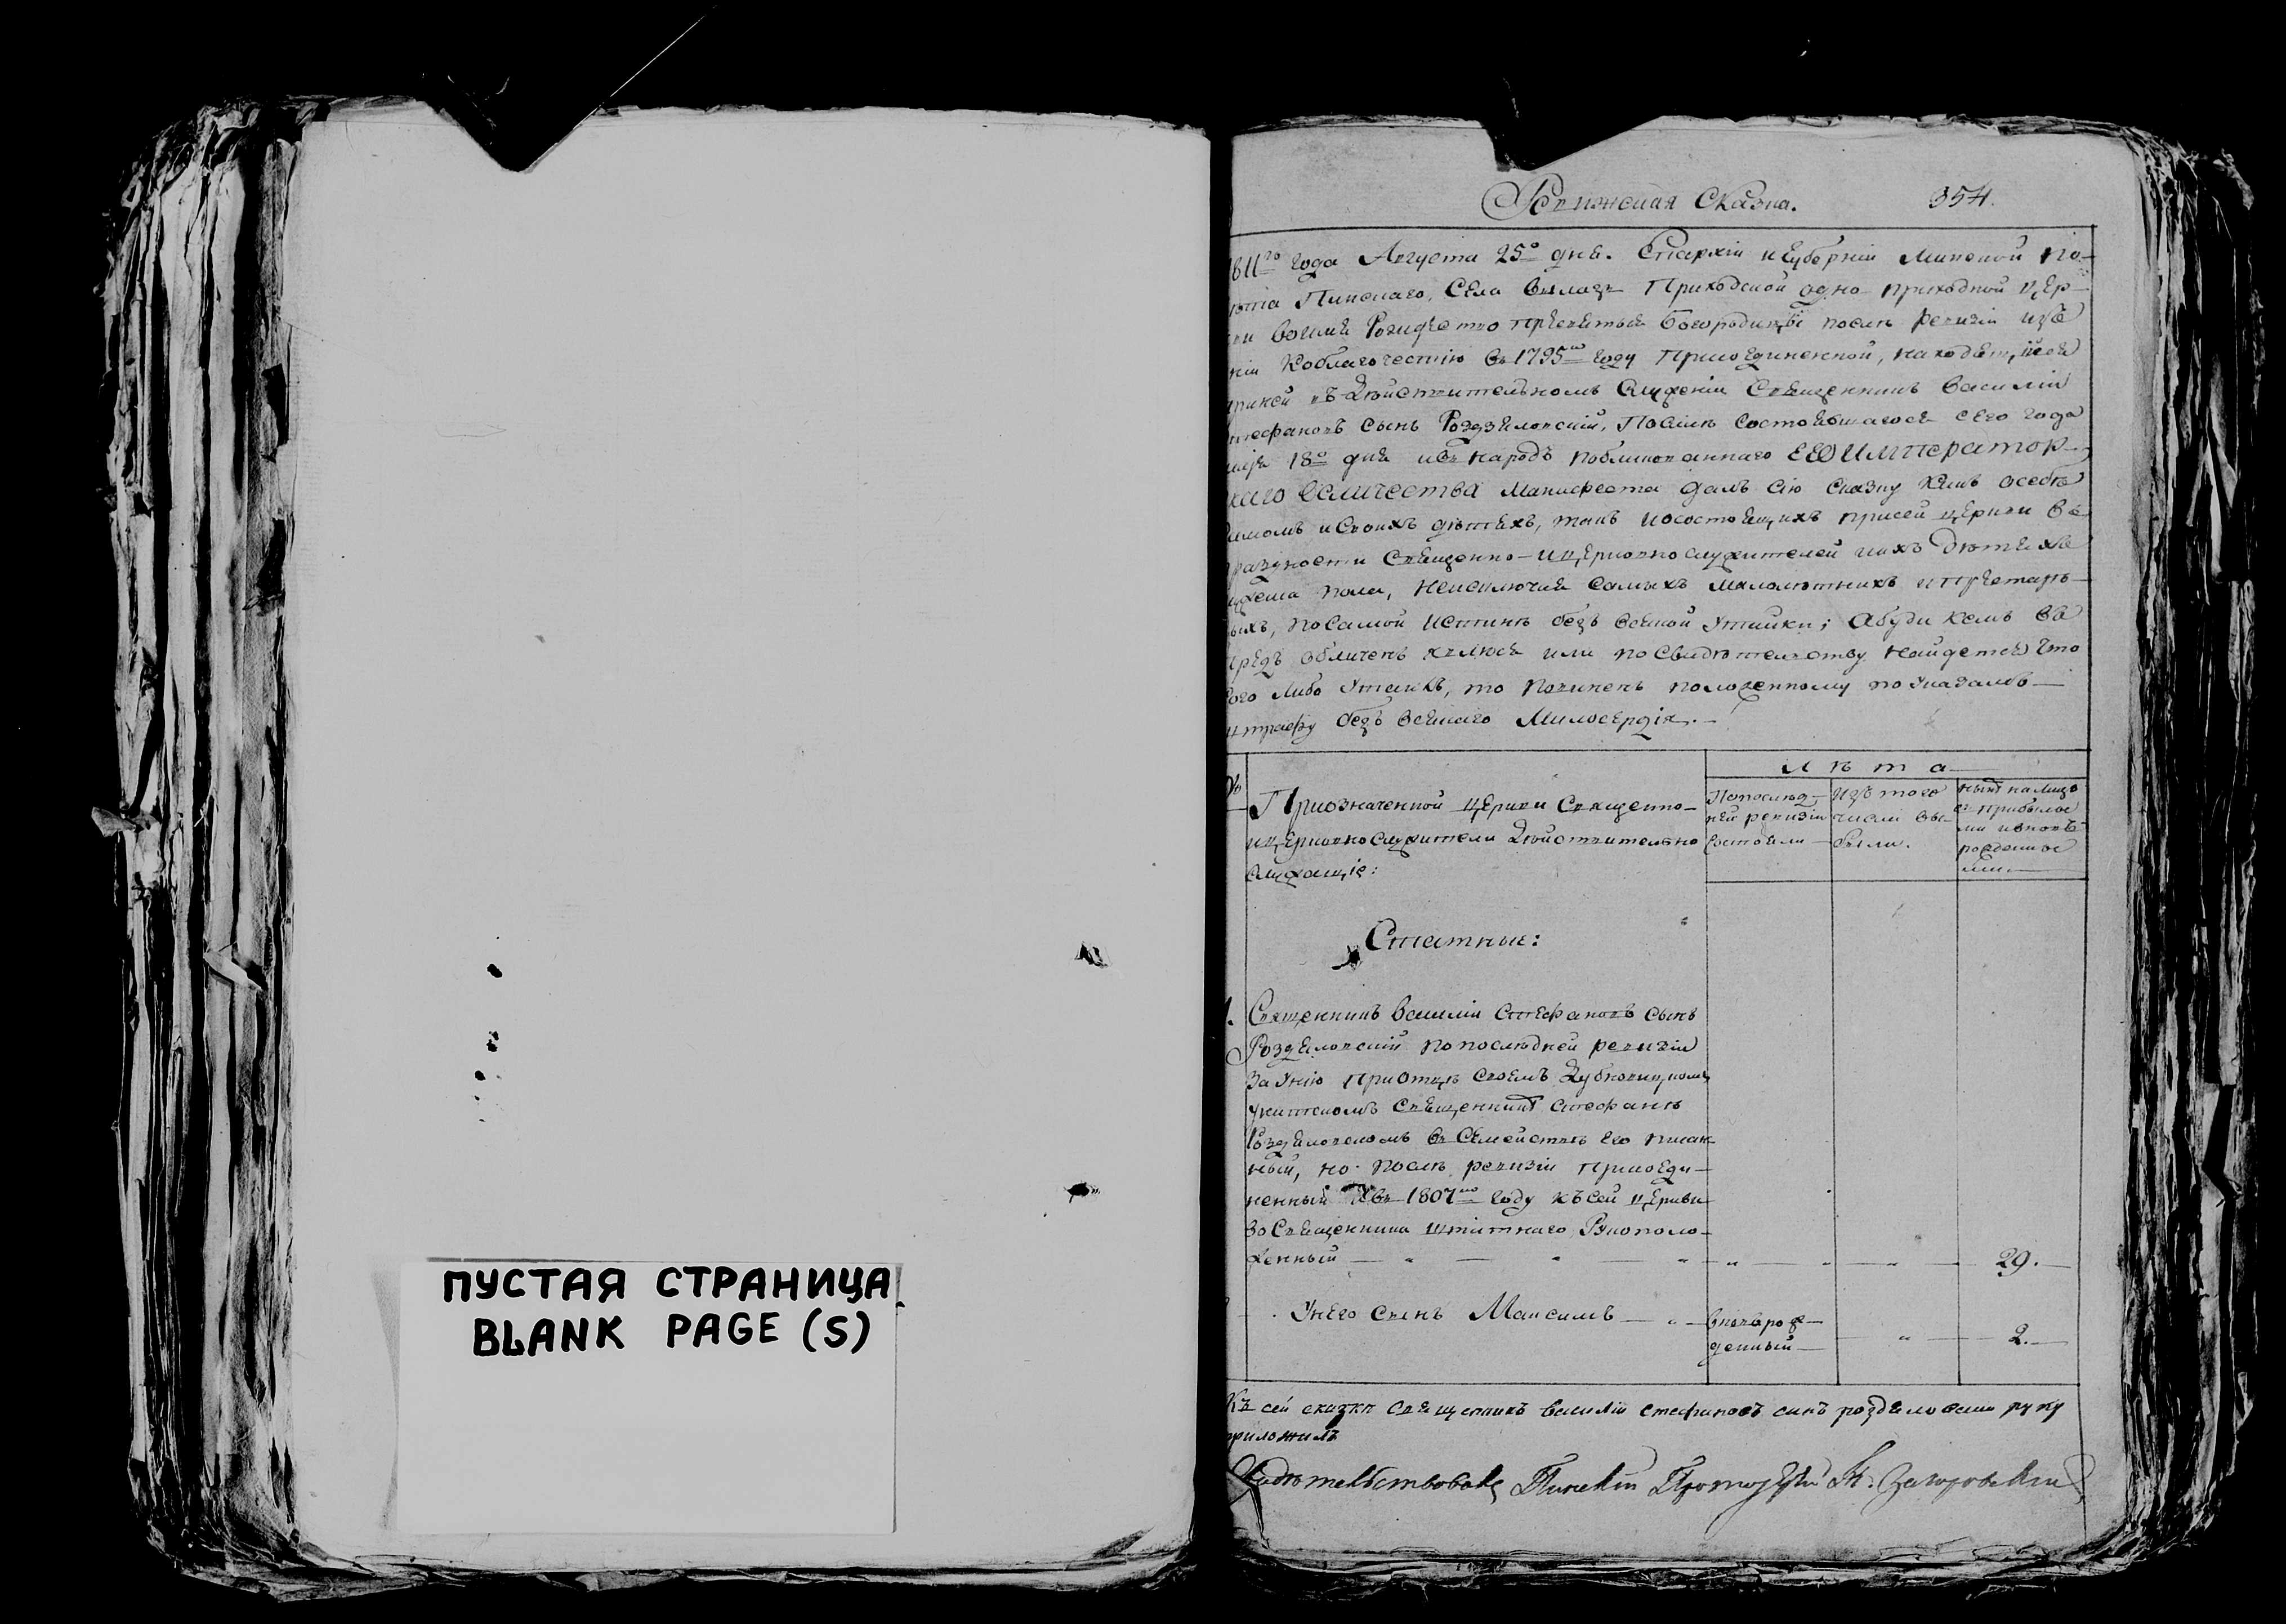 ПУСТАЯ СТРАНИЦА
BLANK PAGE (S)
Ревижская Сказка. 354.
1811го года Августа 25о дня. Епархіи и Губерніи Минской По-
вѣта Пинскаго, Села Вылазъ Приходской одно приходной Цер-
кви воимя Рождество пресвятыя Богородицы послѣ ревизіи изъ
уніи Коблагочестію въ 1795мъ году Присоединенной, находящійся
приней въ Дѣйствительномъ Служеніи Священникъ Василій
Стефановъ сынъ Роздзяловскій, Посилѣ состоявшагося сего года
18о дня и въ народъ публикованнаго ЕГО Император-
скаго Величества Манифеста далъ сію сказку какъ осебѣ
самомъ и своихъ дѣтяхъ, такъ и осостоящихъ присей церкви въ
праздности Священно- и церковнослужителей иихъ дѣтяхъ
мужеска пола, неисключая самыхъ малолѣтнихъ и престарѣ-
лыхъ, по самой истиннѣ безъ всякой утайки; Абуди кемъ въ
предь обличенъ явлюся или по свидѣтельству найдется что
кого либо утаилъ, то повиненъ положенному по указамъ
штрафу безъ всякаго Милосердія.
№ Приозначенной церкви Священно-
и церковнослужители Дѣйствительно
служащіе:
Лѣта
Попослѣд-
ней ревизіи
состояли
Изъ того
числа вы-
были.
Нынѣ на лицо
съ прибылы
ми и вновь
рожденны
ми.
Статные:
1. Священникъ Василій Стефановъ сынъ
Роздяловскій по послѣдней ревизіи
за Унію при отцѣ своемъ Дубновицкомъ
унитскомъ священникѣ Стефанѣ
Роздяловскомъ въ Семействѣ его писан
ный, но послѣ ревизіи присоеди-
ненный и въ 1807мъ году къ сей церкви
во Священника штатнаго Рукополо-
женный — „ — „ — „ — „ — 29.
У него сынъ Максимъ — „ — вновьрож-
денный — „ — 2.
Къ сей сказкѣ священникъ василій стефановъ синъ роздяловскій руку
приложилъ
Свидѣтельствовалъ Пинскій Протоіерей